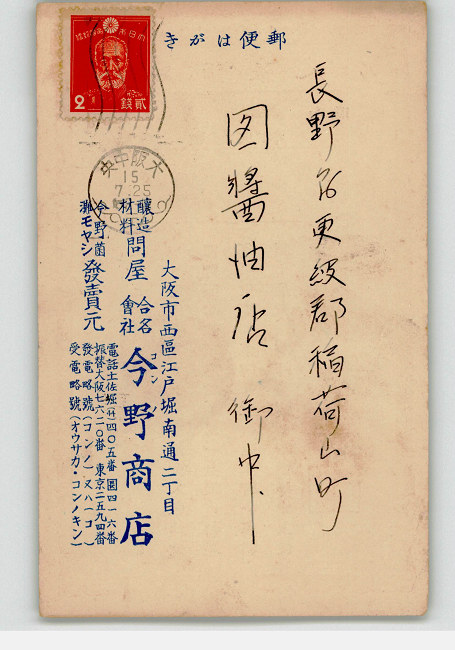 郵便はがき
長野縣更級郡稲荷山町
醤油店 御中
大日本帝國郵便
2
貳錢
大阪中央
15
7.25
大阪市西區江戸堀南通二丁目
釀造材料 問屋 合名會社 今野商店
コン
今野菌
灘モヤシ 發賣元
電話土佐堀(44)四〇五番 圓四一六番
振替大阪七六二〇番 東京二五九四番
發電略號(コンノ)又ハ(コ)
受電略號(オウサカ・コンノキン)